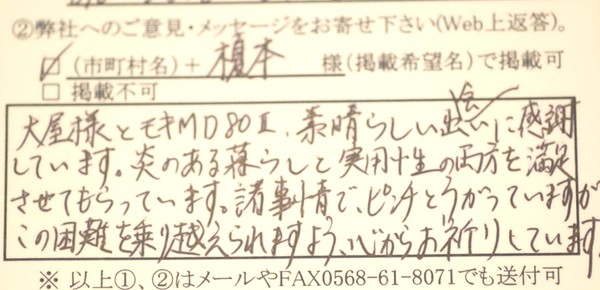 ②弊社へのご意見・メッセージをお寄せ下さい(Web上返答)。
☑ (市町村名)+ 榎本 様(掲載希望名)で掲載可
□ 掲載不可
大屋様とモキMD80Ⅱ、素晴らしい出会いに感謝
しています。炎のある暮らしと実用性の両方を満足
させてもらっています。諸事情で、ピンチとうかがっていますが
この困難を乗り越えられますよう、心からお祈りしています。
※ 以上①、②はメールやFAX0568-61-8071でも送付可